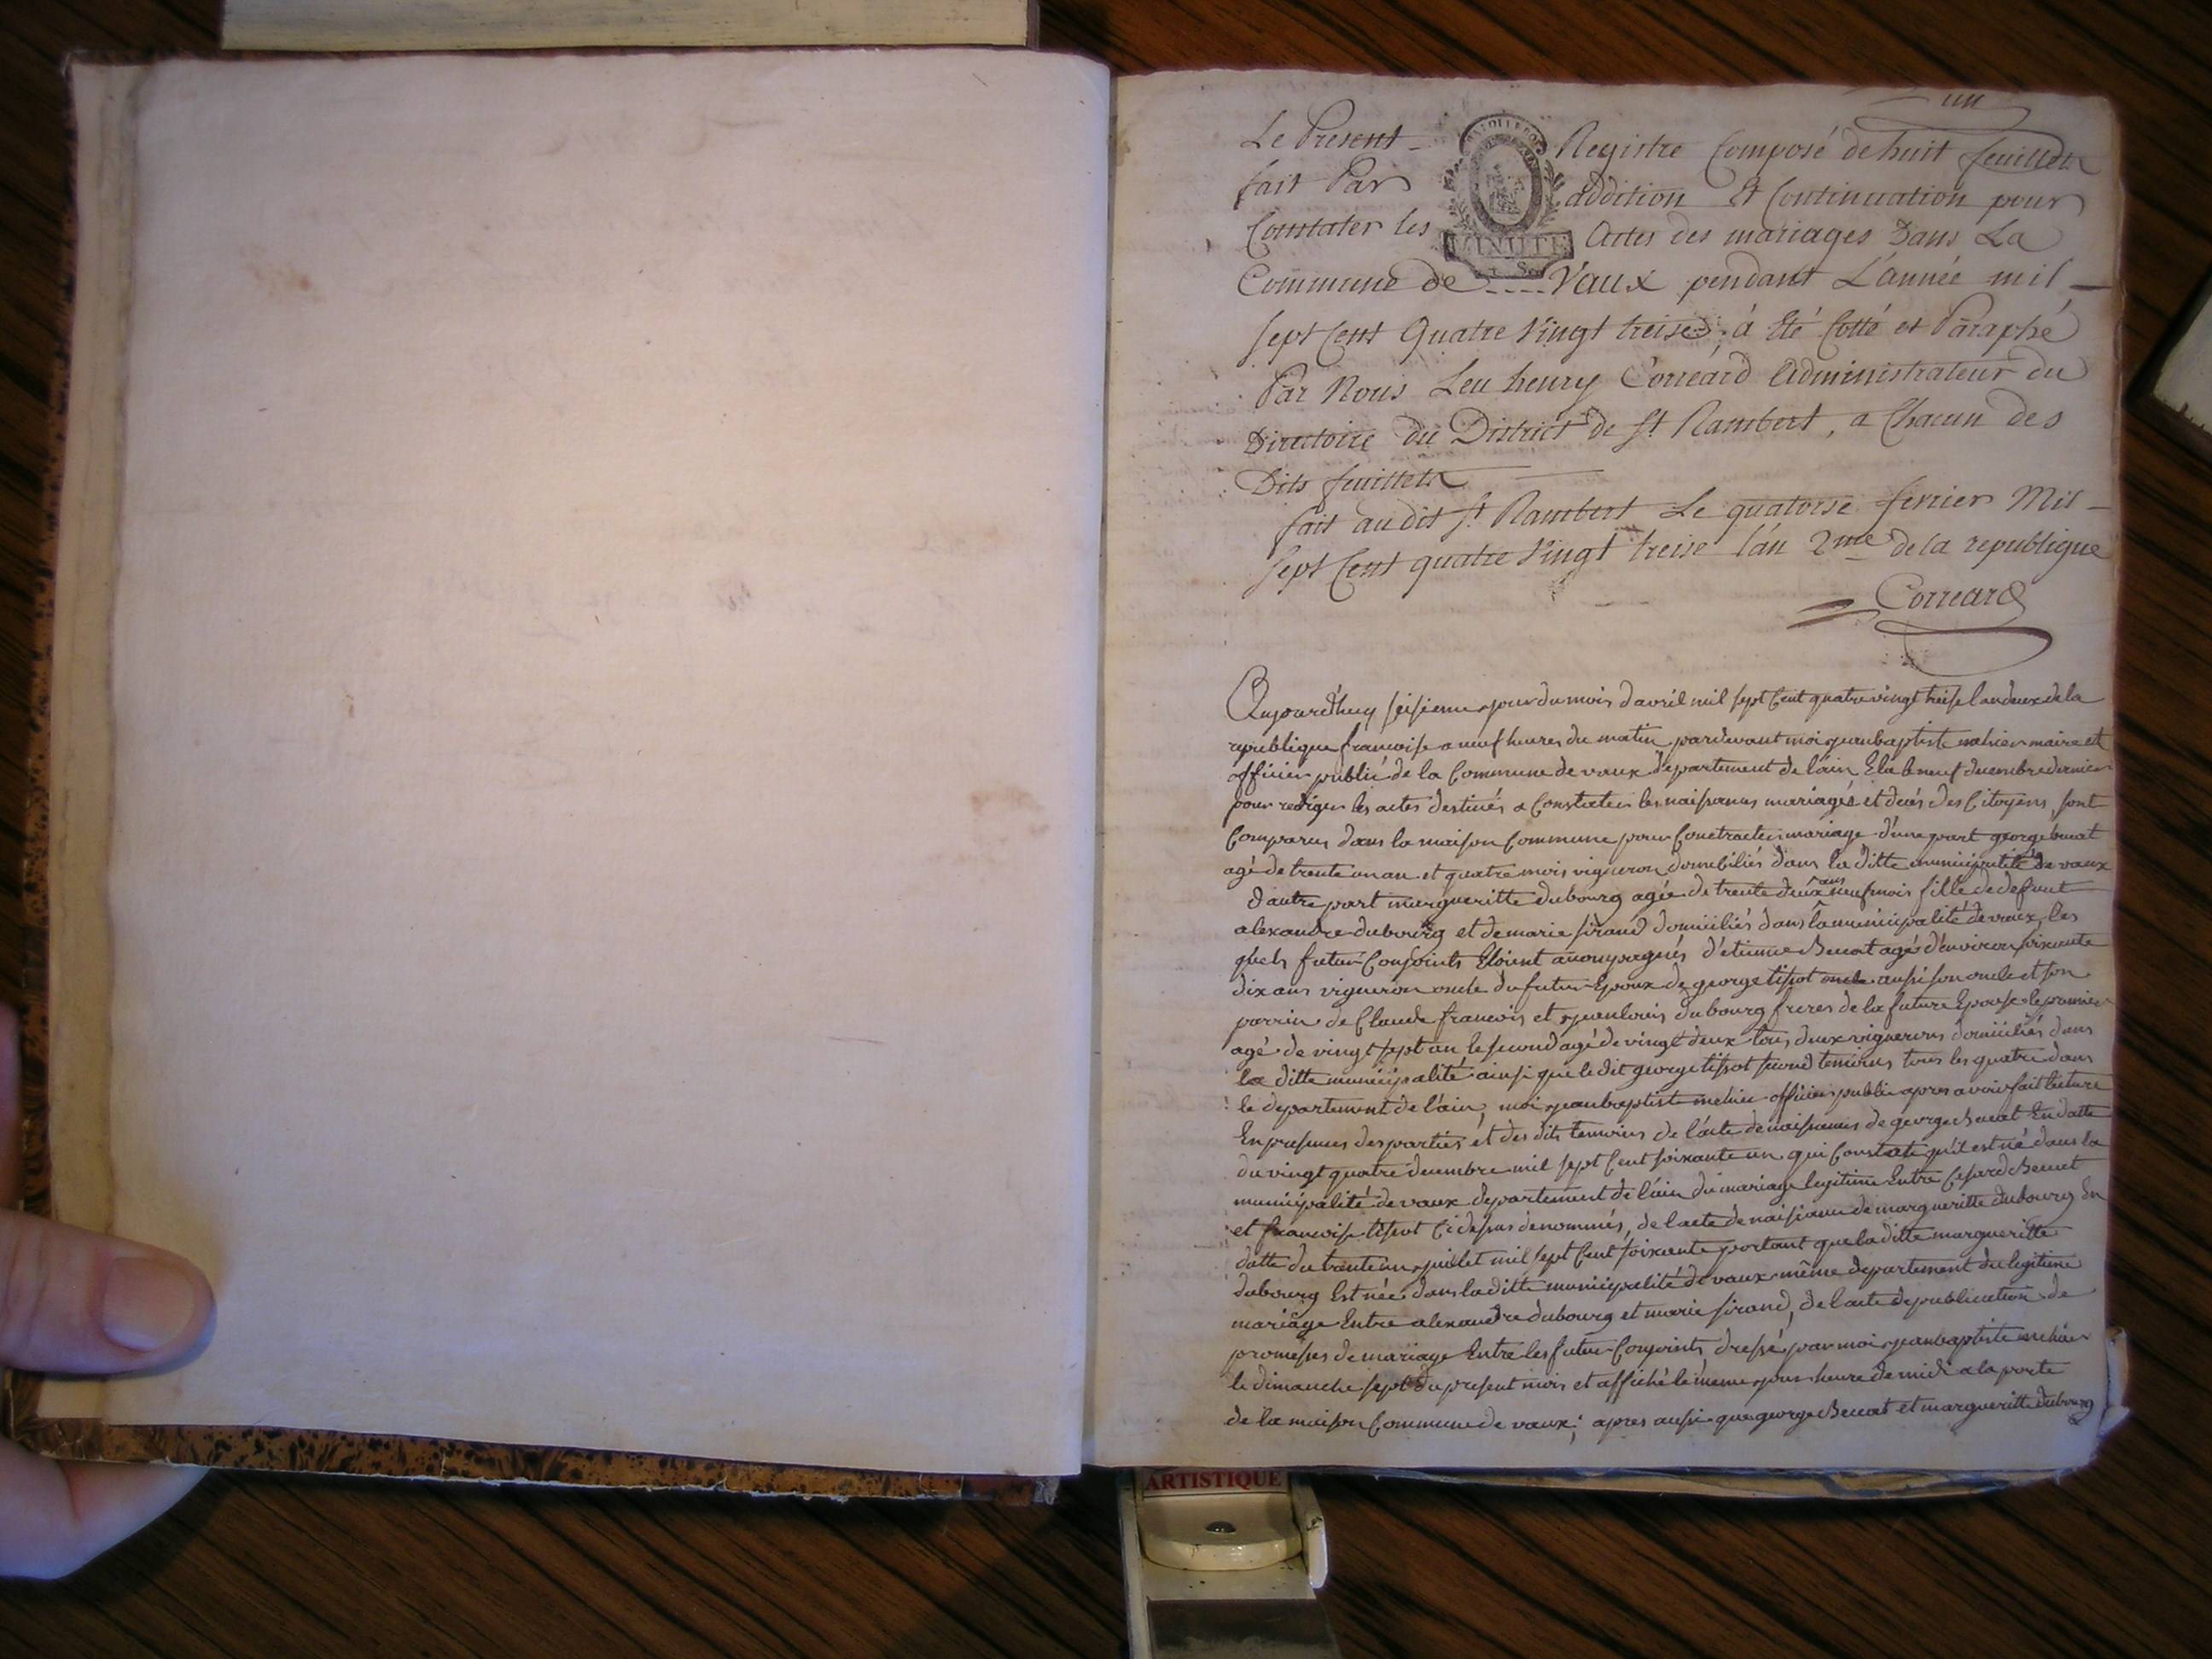 un
Le Present Registre Composé de huit feuillets
fait Par addition Et Continuation pour
Constater les Actes des mariages Dans La
MINUTE
Commune de .... Vaux pendant L'année mil
sept Cent Quatre Vingt treise, à Eté Cotté et Paraphé
Par Nous Leu henry Corréard Administrateur du
Directoire du District de St Rambert, a Chacun des
Dits feuillets
fait au dit St Rambert Le quatorse fevrier Mil
sept Cent quatre Vingt treise l'an 2me de la republique
Correard
Aujourdhuy seisieme jour du mois d'avril mil sept Cent quatre vingt treise l'an deux de la
republique francoise a neuf heures du matin pardevant moi jean baptiste maire et
officier public de la Commune de vaux departement de l'ain Elu le neuf decembre dernier
pour rediger les actes destinés a Constater les naissances mariages et decés des Citoyens, sont
Comparus dans la maison Commune pour Contracter mariage d'une part george
agé de trente un an et quatre mois vigneron domiciliés dans la ditte municipalité de vaux
d'autre part margueritte dubourg agée de trente deux ans neuf mois fille de defunt
alexandre dubourg et de marie sirand domiciliés dans la municipalité de vaux, les
quels futur Conjoints Etoient accompagnés d'etienne agé d'environ soixante
dix ans vigneron oncle du futur Epoux de george tissot aussi son oncle et son
parrin de Claude francois et jean louis dubourg freres de la future Epouse le premier
agé de vingt sept an le second agé de vingt deux tous deux vignerons domiciliés dans
la ditte municipalité ainsi que le dit george tissot second temoins tous les quatre dans
le departement de l'ain, moi jean baptiste officier public apres avoir fait lecture
En presences des parties et des dits temoins de l'acte de naissances de george En datte
du vingt quatre decembre mil sept Cent soixante un qui Constate qu'il est né dans la
municipalité de vaux departement de l'ain du mariage legitime Entre
et francoise tissot Ci dessus denommés, de l'acte de naissance de margueritte dubourg En
datte du trente un juillet mil sept Cent soixante portant que la ditte margueritte
dubourg Est née dans la ditte municipalité de vaux même departement du legitime
mariage Entre alexandre dubourg et marie sirand, de l'acte de publication de
promesses de mariage Entre les futur Conjoints dressé par moi jean baptiste
le dimanche sept du present mois et affiché le meme jour heure de midi a la porte
de la maison Commune de vaux; apres aussi que george et margueritte dubourg
ARTISTIQUE